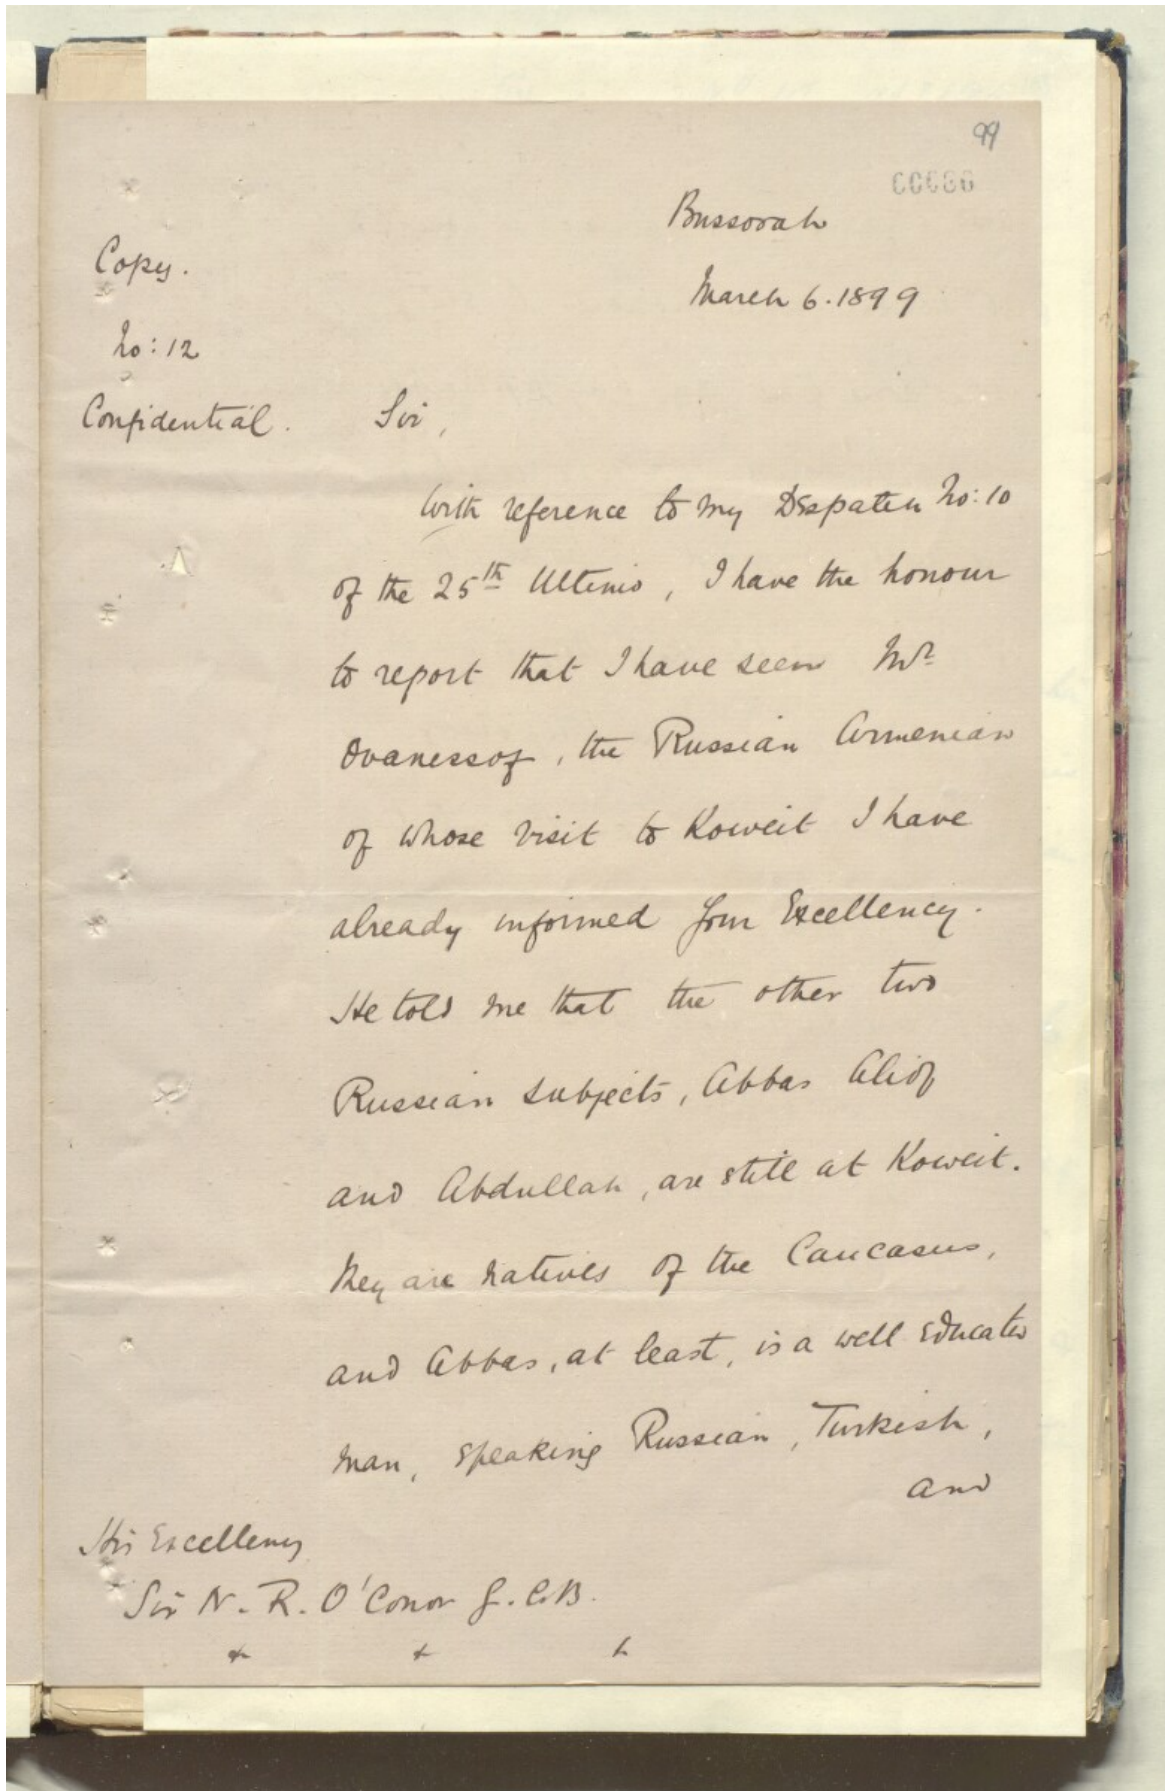 99
Bussorah
March 6. 1899
Copy.
No: 12
Confidential.
Sir,
With reference to my Despatch No: 10
of the 25th Ultimo, I have the honour
to report that I have seen Mr
Ovanessof, the Russian Armenian
of whose visit to Koweit I have
already informed Your Excellency.
He told me that the other two
Russian subjects, Abbas Aliof
and Abdullah, are still at Koweit.
They are natives of the Caucasus,
and Abbas, at least, is a well educated
man, speaking Russian, Turkish,
and
His Excellency
Sir N. R. O'Conor G.C.B.